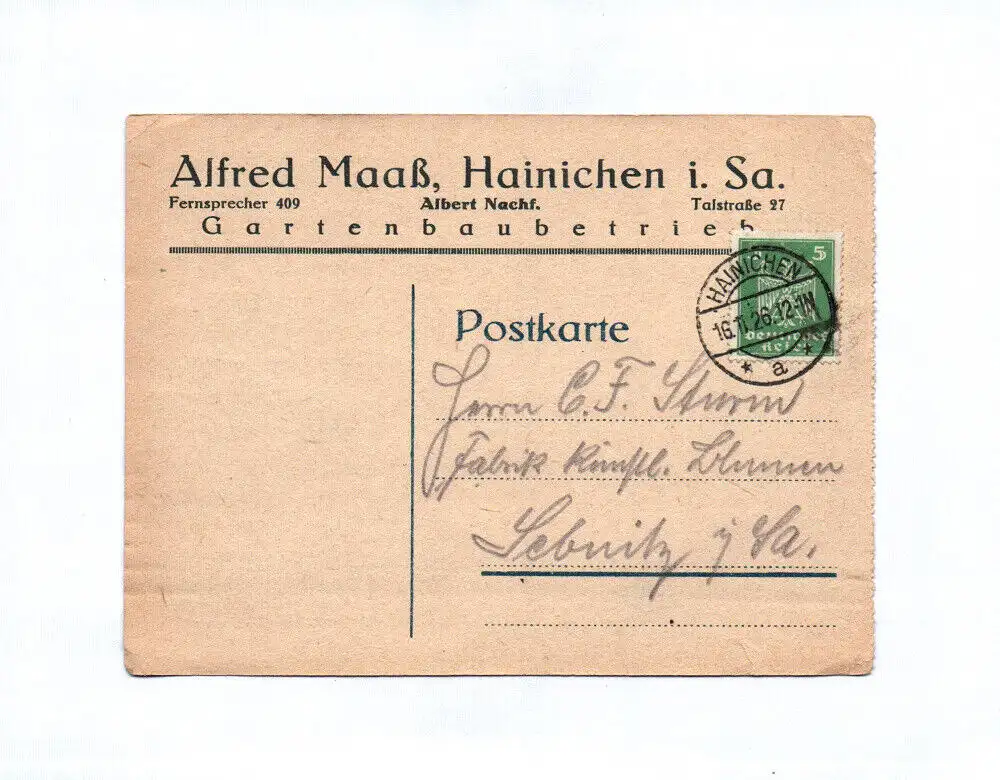 Alfred Maaß, Hainichen i. Sa.
Fernsprecher 409 Albert Nachf. Talstraße 27
Gartenbaubetrieb
5
Deutsches
Reich
HAINICHEN
26.12-1N
* a *
Postkarte
Herrn C. F. Sturm
Fabrik künstl. Blumen
Sebnitz i/Sa.